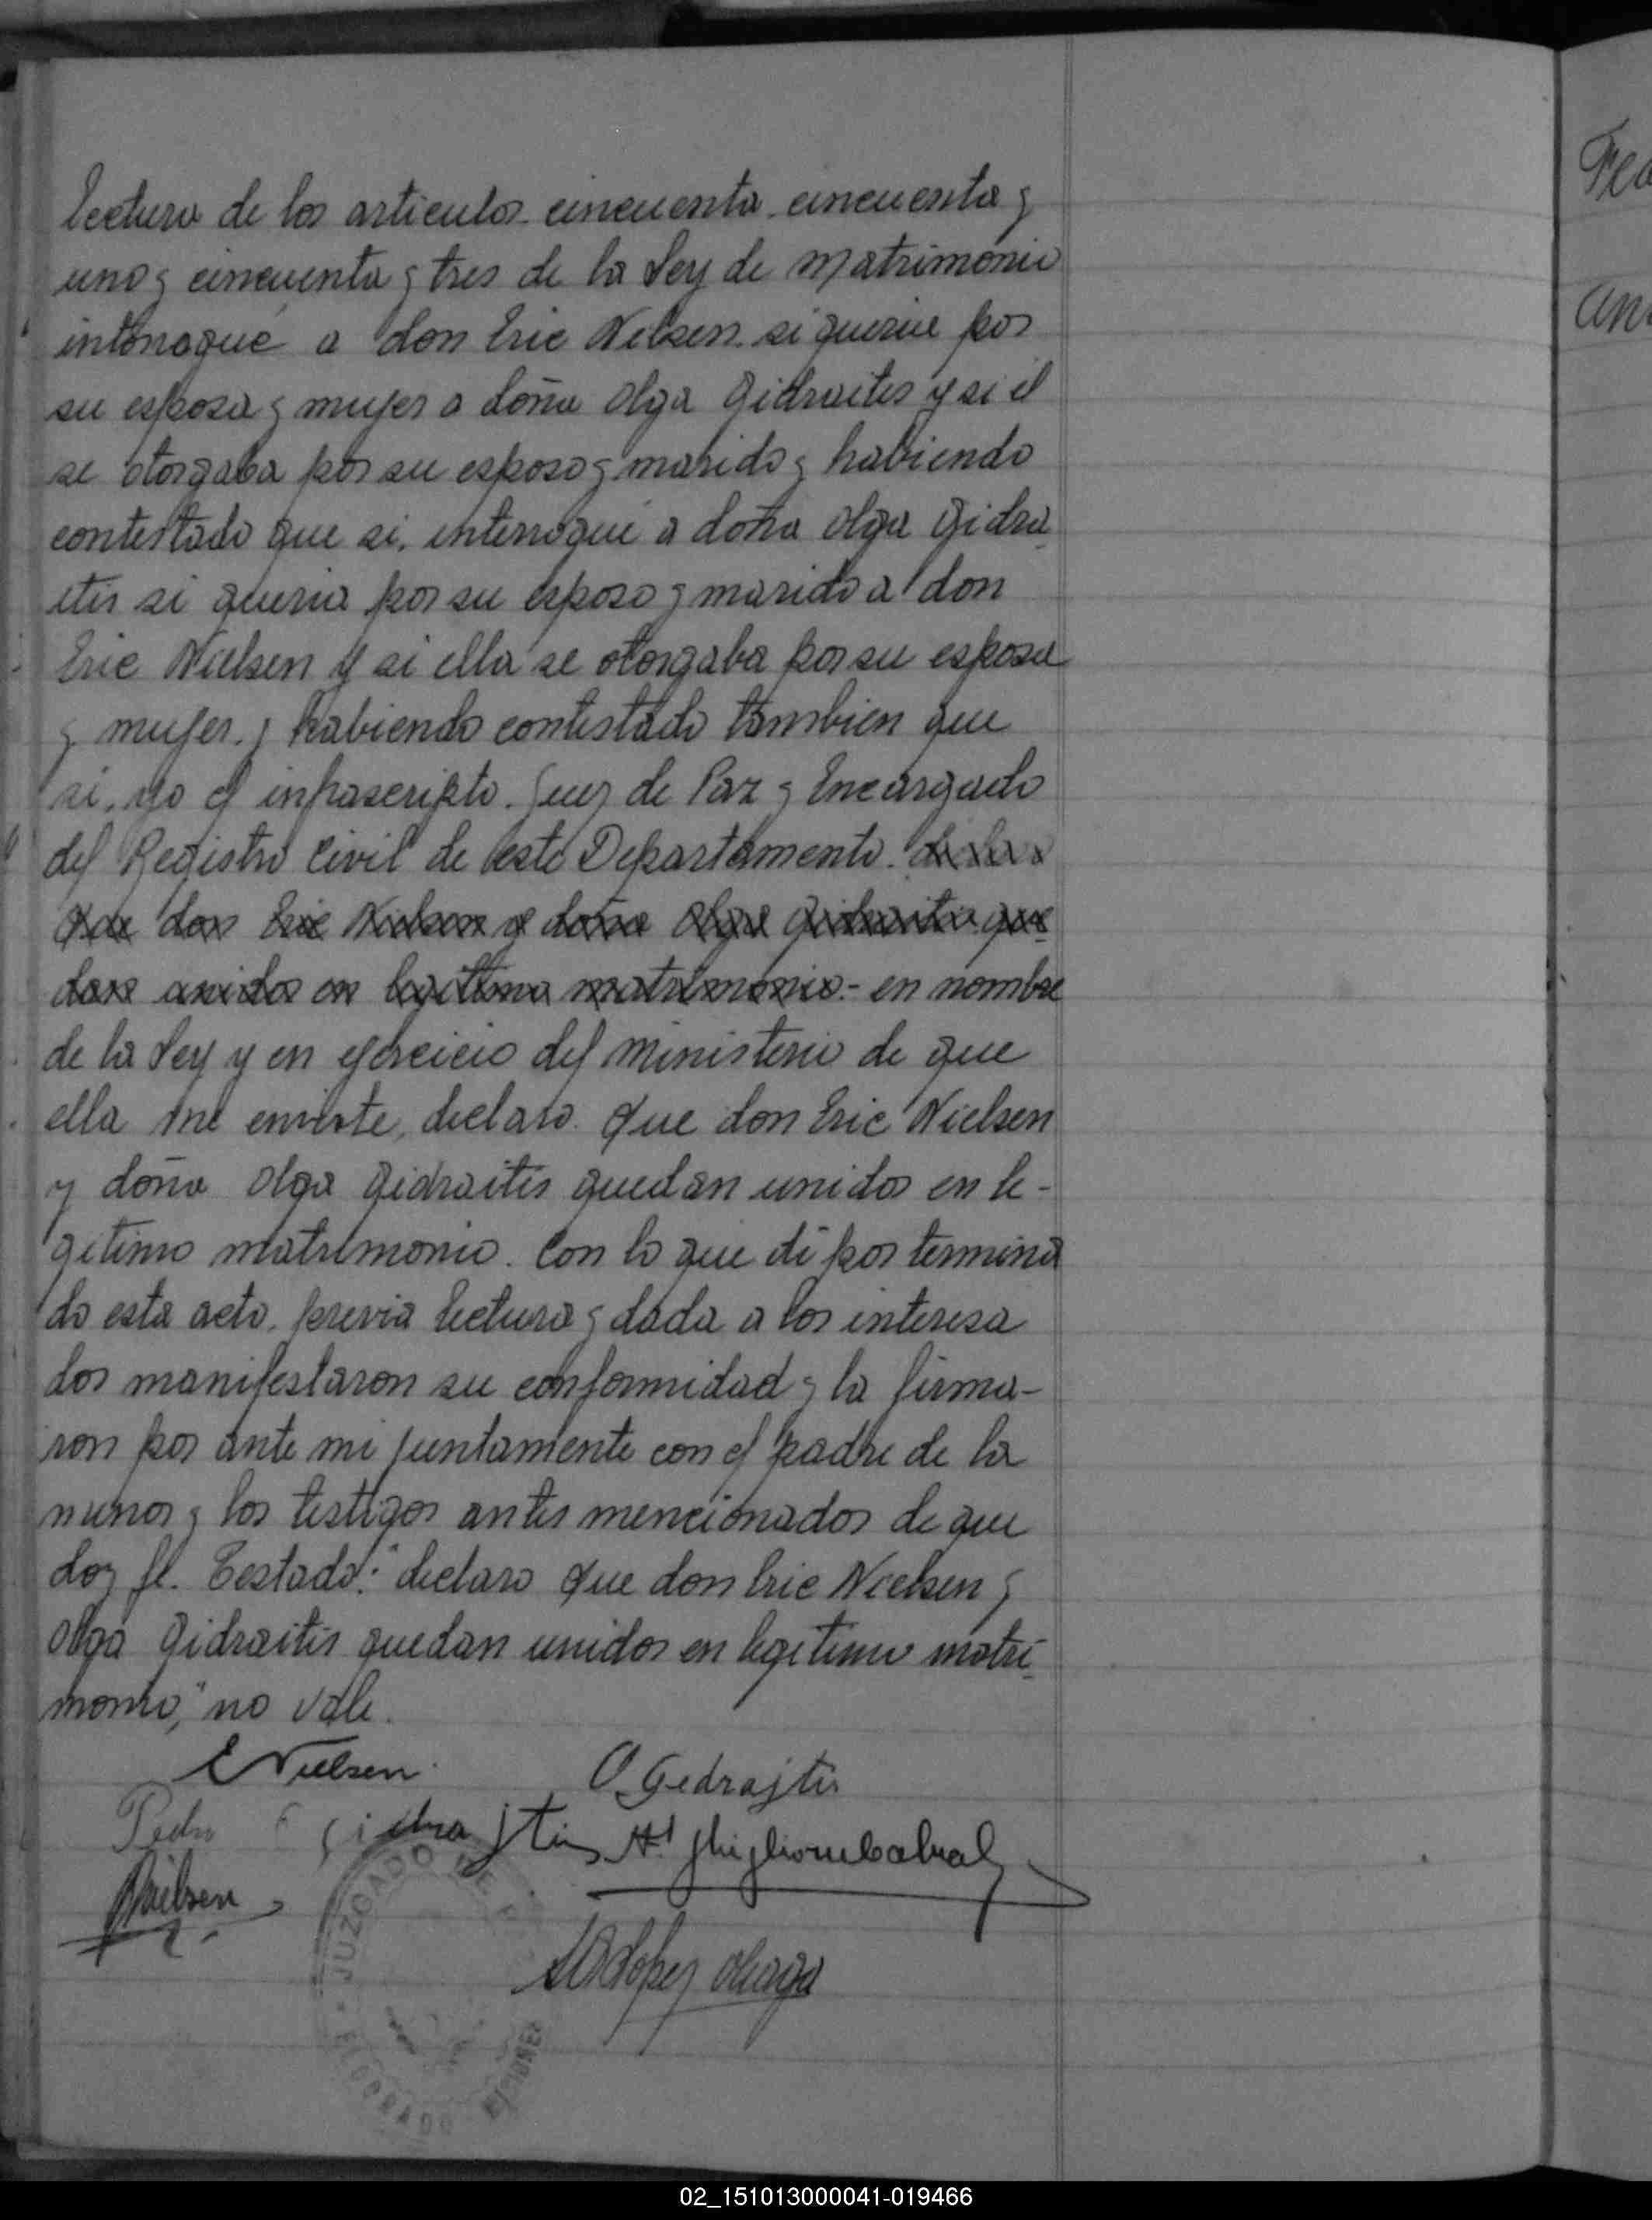 lectura de los articulos cincuenta cincuenta y
uno y cincuenta y tres de la Ley de Matrimonio
interrogué a don Eric Nielsen si queria por
su esposa y mujer a doña Olga Gidraites y si él
se otorgaba por su esposo y marido y habiendo
contestado que si, interrogué a doña Olga Gidra
itis si queria por su esposo y marido a don
Eric Nielsen y si ella se otorgaba por su esposa
y mujer y habiendo contestado tambien que
si, yo el infrascripto Juez de Paz y Encargado
del Registro Civil de este Departamento
que don Eric Nielsen y doña Olga Gidraitis que
dan unidos en legitimo matrimonio.- en nombre
de la Ley y en ejercicio del Ministerio de que
ella me enviste, declaro que don Eric Nielsen
y doña Olga Gidraitis quedan unidos en le-
gitimo matrimonio. Con lo que di por termina
do esta acto, previa lectura y dada a los interesa
dos manifestaron su conformidad y la firma-
ron por ante mi juntamente con el padre de la
menor y los testigos antes mencionados de que
doy fé. Testado: "declaro que don Eric Nielsen y
Olga Gidraitis quedan unidos en legitimo matri
monio," no vale.
E Nielsen O Gedrajtis
Pedro Gidrajtis
Nielsen
JUZGADO DE
Lopez
ELDORADO MISIONES
Fe
an
02_151013000041-019466